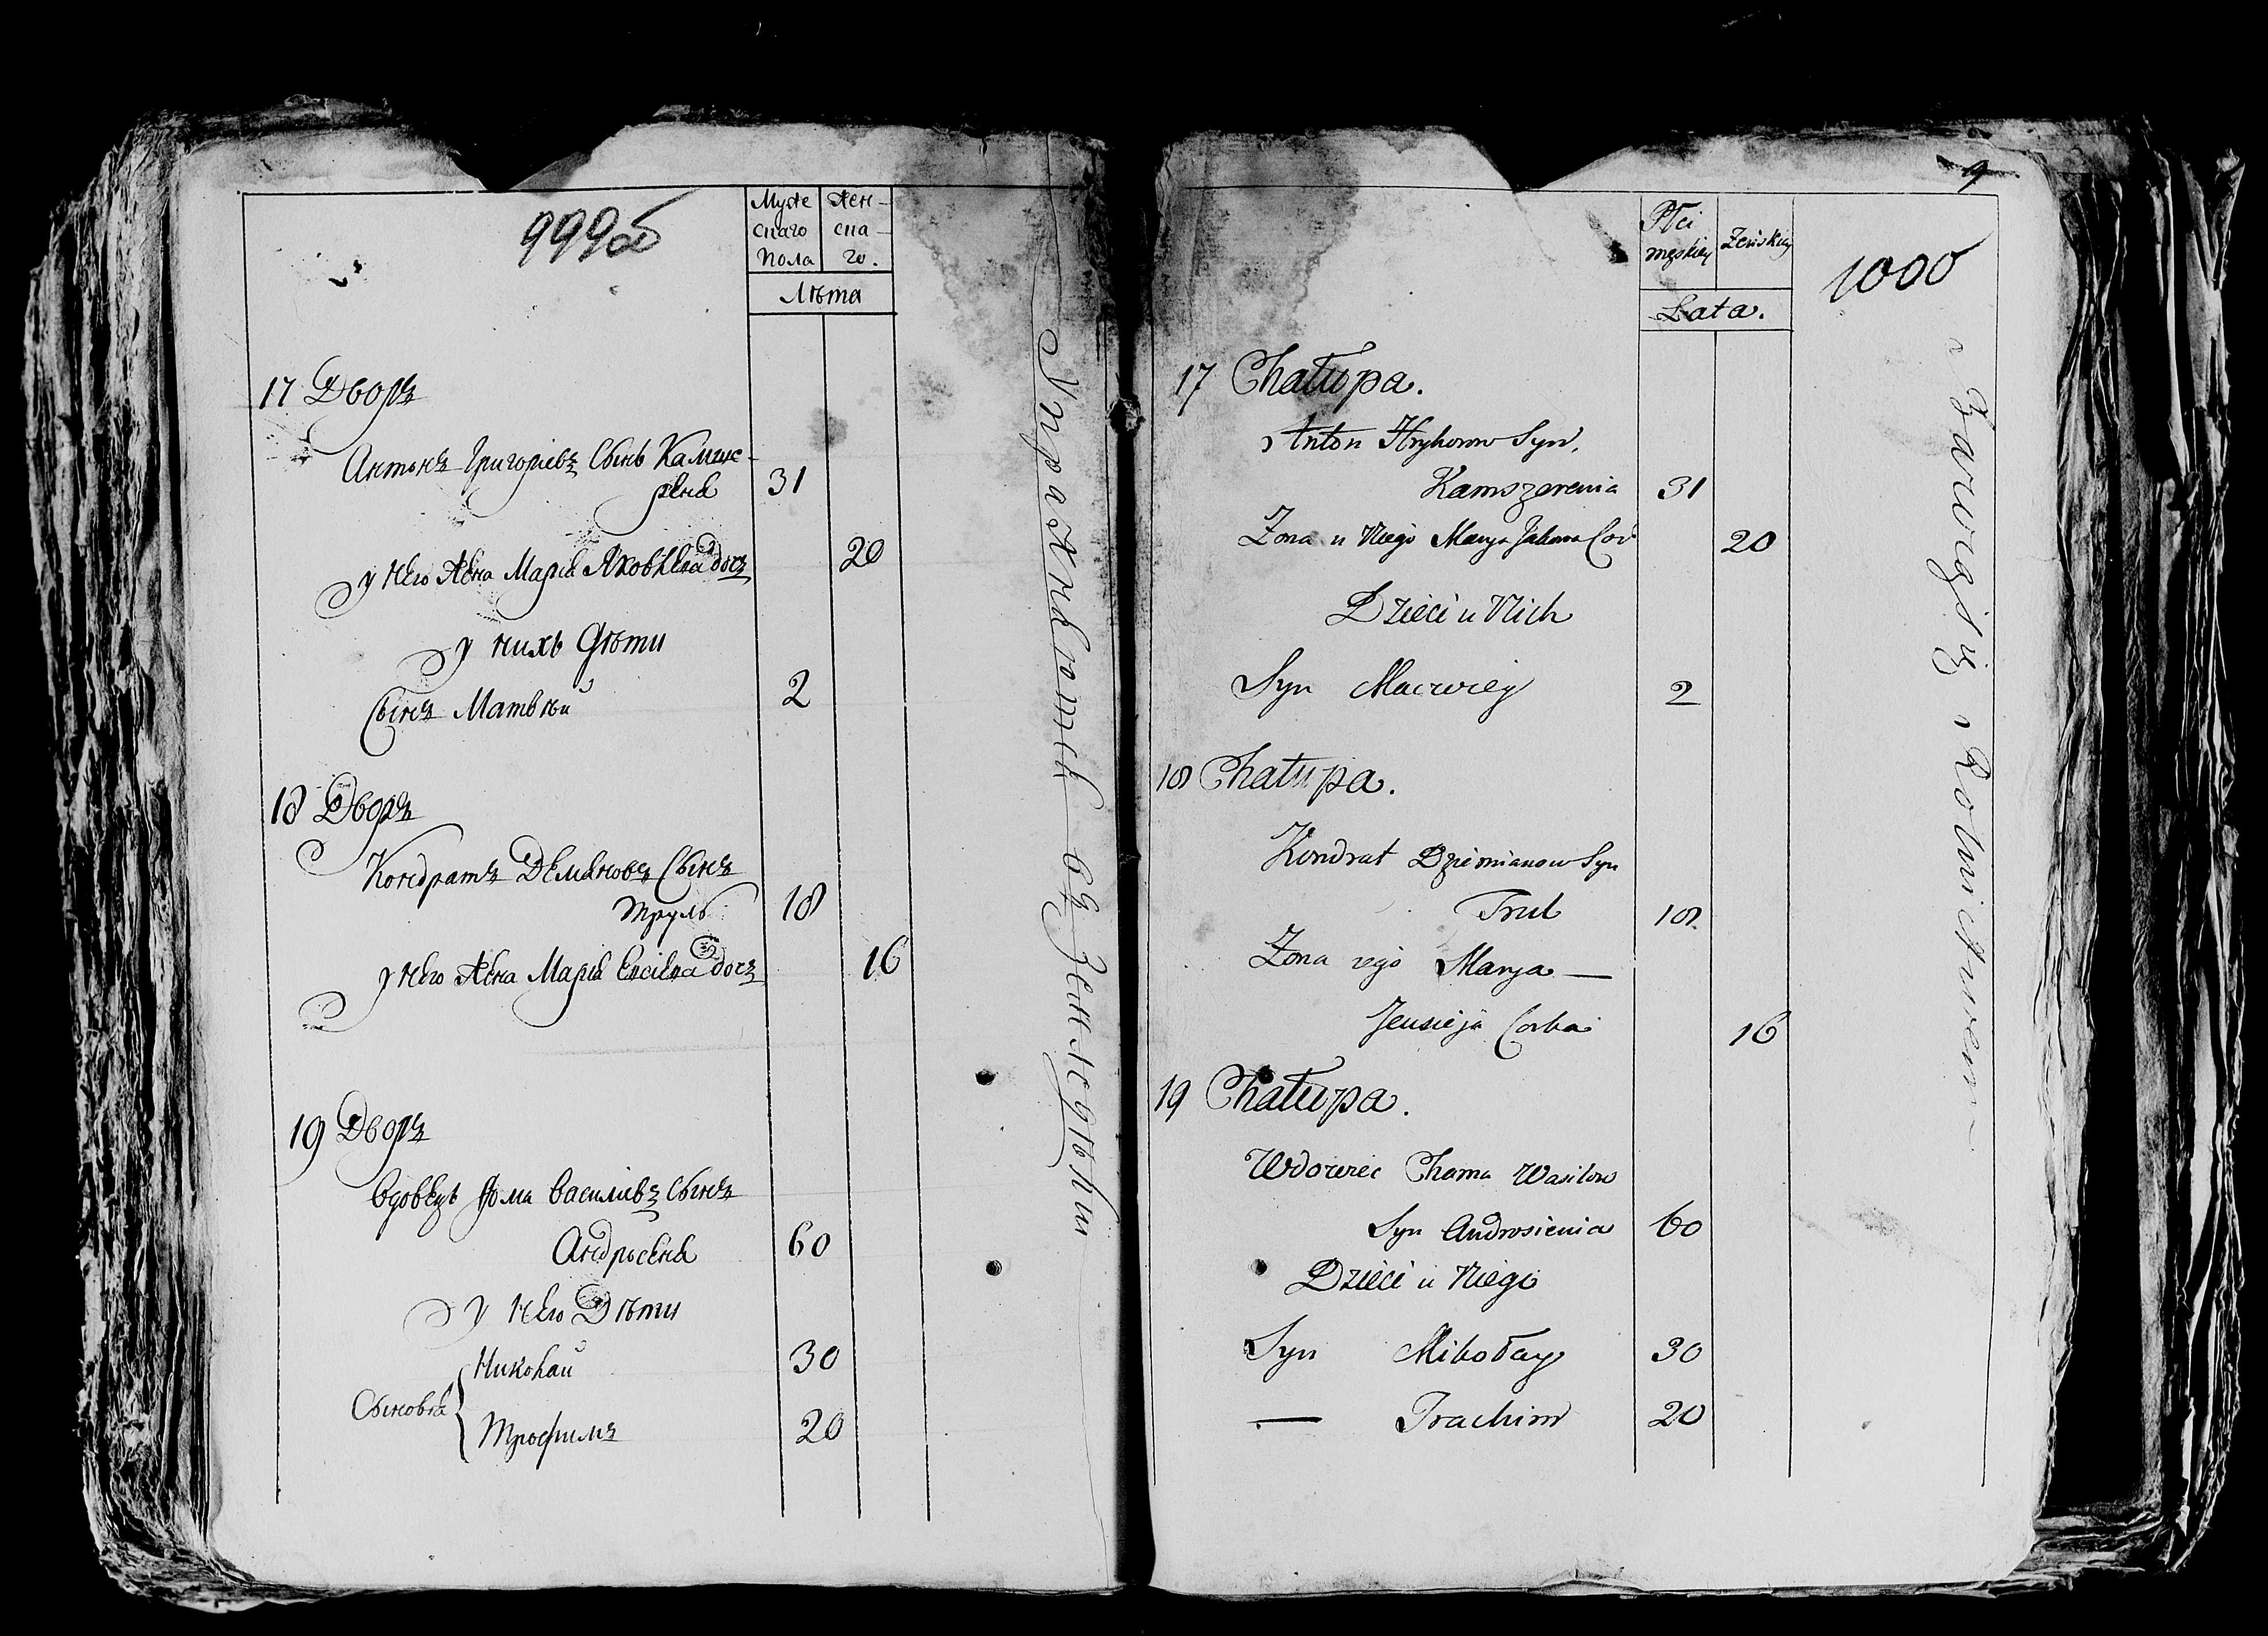 999об
Муже Жен-
скаго ска-
Пола го.
Лѣта
17 Дворъ
Антонъ Григорiевъ Сынъ Камше-
реня 31
у него Жена Марiя Яковлева дочъ 20
у нихъ Дѣти
Сынъ Матвѣй 2
18 Дворъ
Кондратъ Демяновъ Сынъ
Труль 18
у него Жена Марiя Евсiева дочъ 16
19 Дворъ
Вдовецъ Фома Василiевъ Сынъ
Андросеня 60
у него Дѣти
Николай 30
Сыновья
Трофимъ 20
Упражняются въ Земледѣлiи
9
Płci
męskiey Zenskiey
Lata.
1000
17 Chałupa.
Anton Hryhorow Syn,
Kamszerenia 31
Zona u Niego Marya Jakowa Cor 20
Dzieci u Nich
Syn Maciviey 2
18 Chałupa.
Kondrat Dziemianow Syn
Trul 18
Zona iego Marya —
Jeusieja Corka 16
19 Chałupa.
Wdowiec Choma Wasilow
Syn Androsienia 60
Dzieci u Niego
Syn Mikołay 30
— Trachim 20
Bawią się Rolnictwem